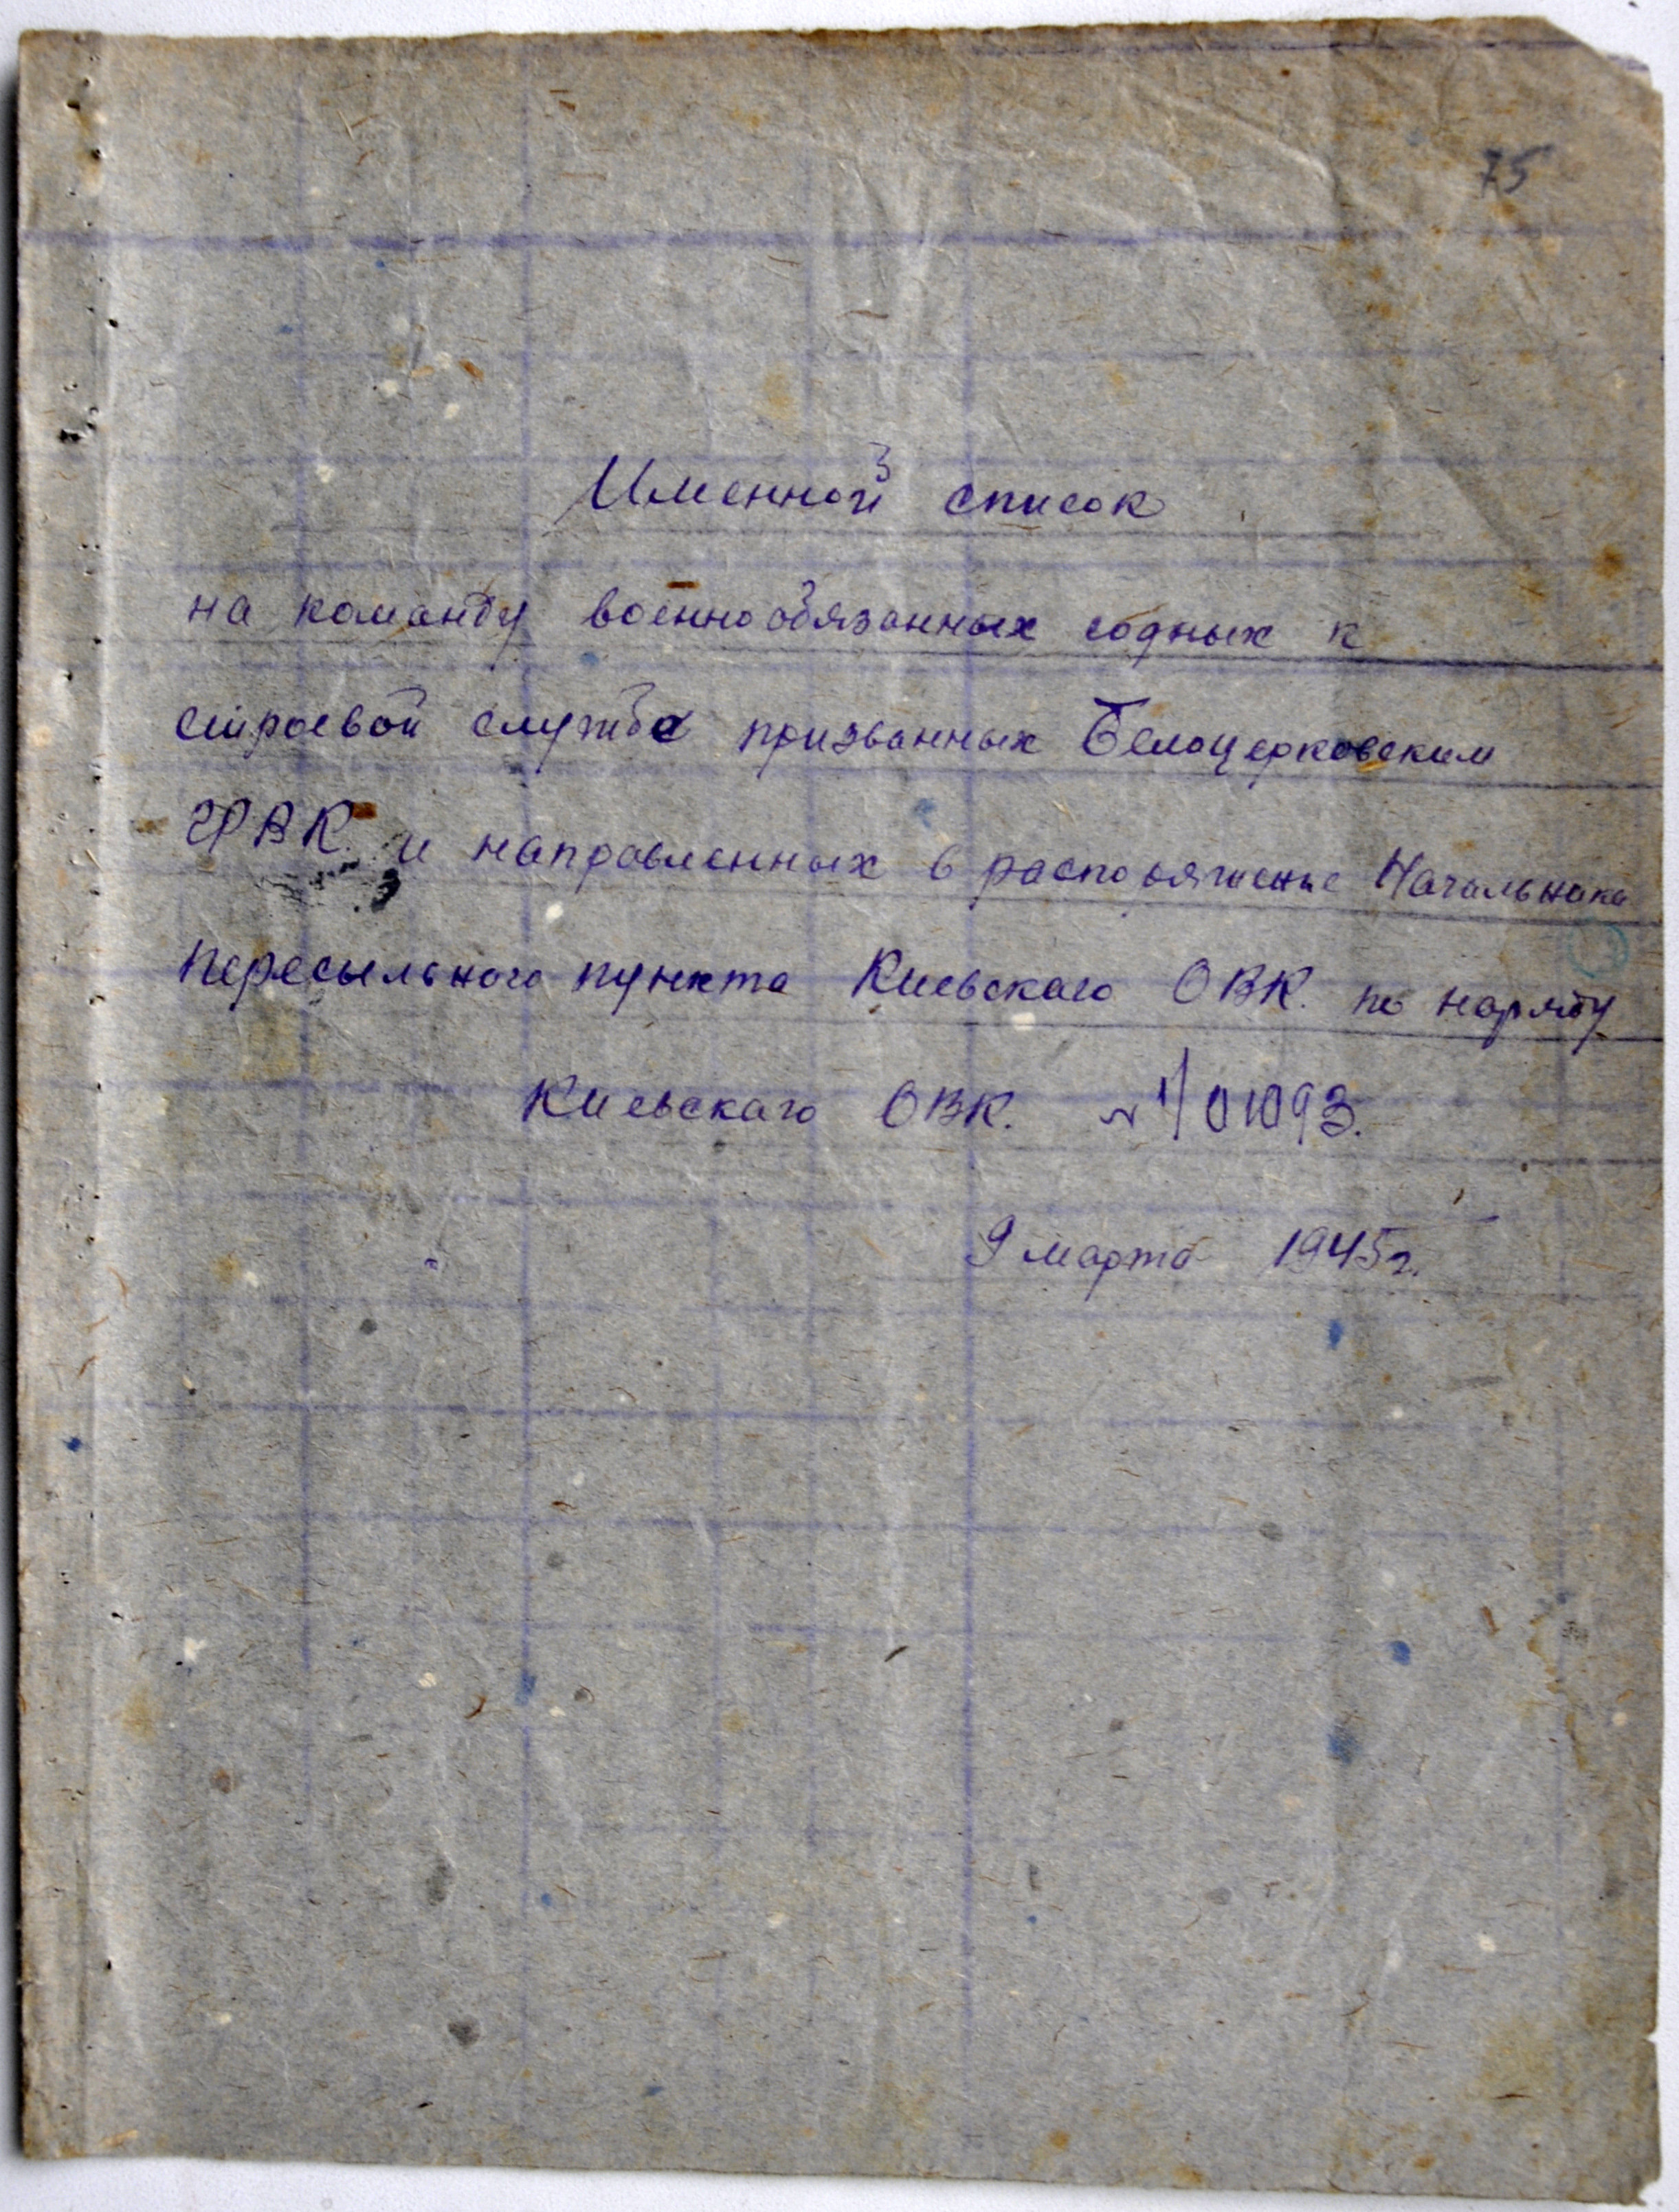 75
Именной список
на команду военнообязанных годных к
строевой службе призванных Белоцерковским
ГРВК. и направленных в распоряжение Начальника
пересыльного пункта Киевского ОВК. по наряду
Киевского ОВК. №1/01093.
9 марта 1945г.